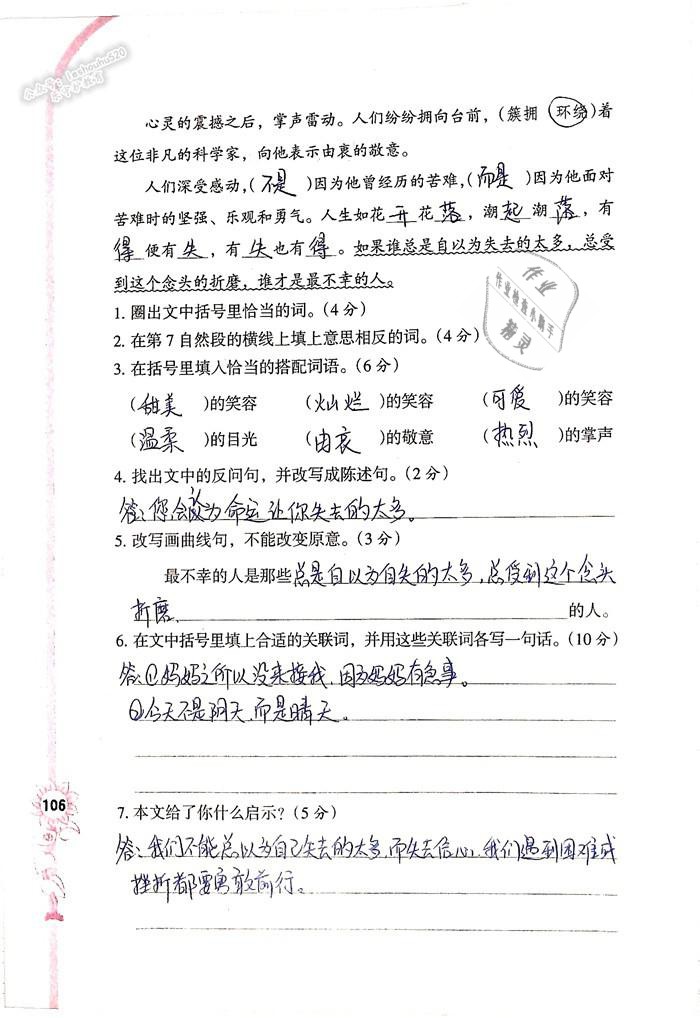 公众号：leshouhu520
乐守护教育
心灵的震撼之后，掌声雷动。人们纷纷拥向台前，（簇拥 环绕）着
这位非凡的科学家，向他表示由衷的敬意。
人们深受感动，（不是）因为他曾经历的苦难，（而是）因为他面对
苦难时的坚强、乐观和勇气。人生如花开花落，潮起潮落，有
得便有失，有失也有得。如果谁总是自以为失去的太多，总受
到这个念头的折磨，谁才是最不幸的人。
1. 圈出文中括号里恰当的词。（4分）
2. 在第7自然段的横线上填上意思相反的词。（4分）
3. 在括号里填入恰当的搭配词语。（6分）
（甜美）的笑容 （灿烂）的笑容 （可爱）的笑容
（温柔）的目光 （由衷）的敬意 （热烈）的掌声
4. 找出文中的反问句，并改写成陈述句。（2分）
答：你会认为命运让你失去的太多。
5. 改写画曲线句，不能改变原意。（3分）
最不幸的人是那些总是自以为自失的太多，总受到这个念头
折磨 的人。
6. 在文中括号里填上合适的关联词，并用这些关联词各写一句话。（10分）
答：①妈妈之所以没来接我，因为妈妈有急事。
②今天不是阴天，而是晴天。
7. 本文给了你什么启示？（5分）
答：我们不能总以为自己失去的太多，而失去信心，我们遇到困难或
挫折都要勇敢前行。
106
作业
作业检查小助手
精灵